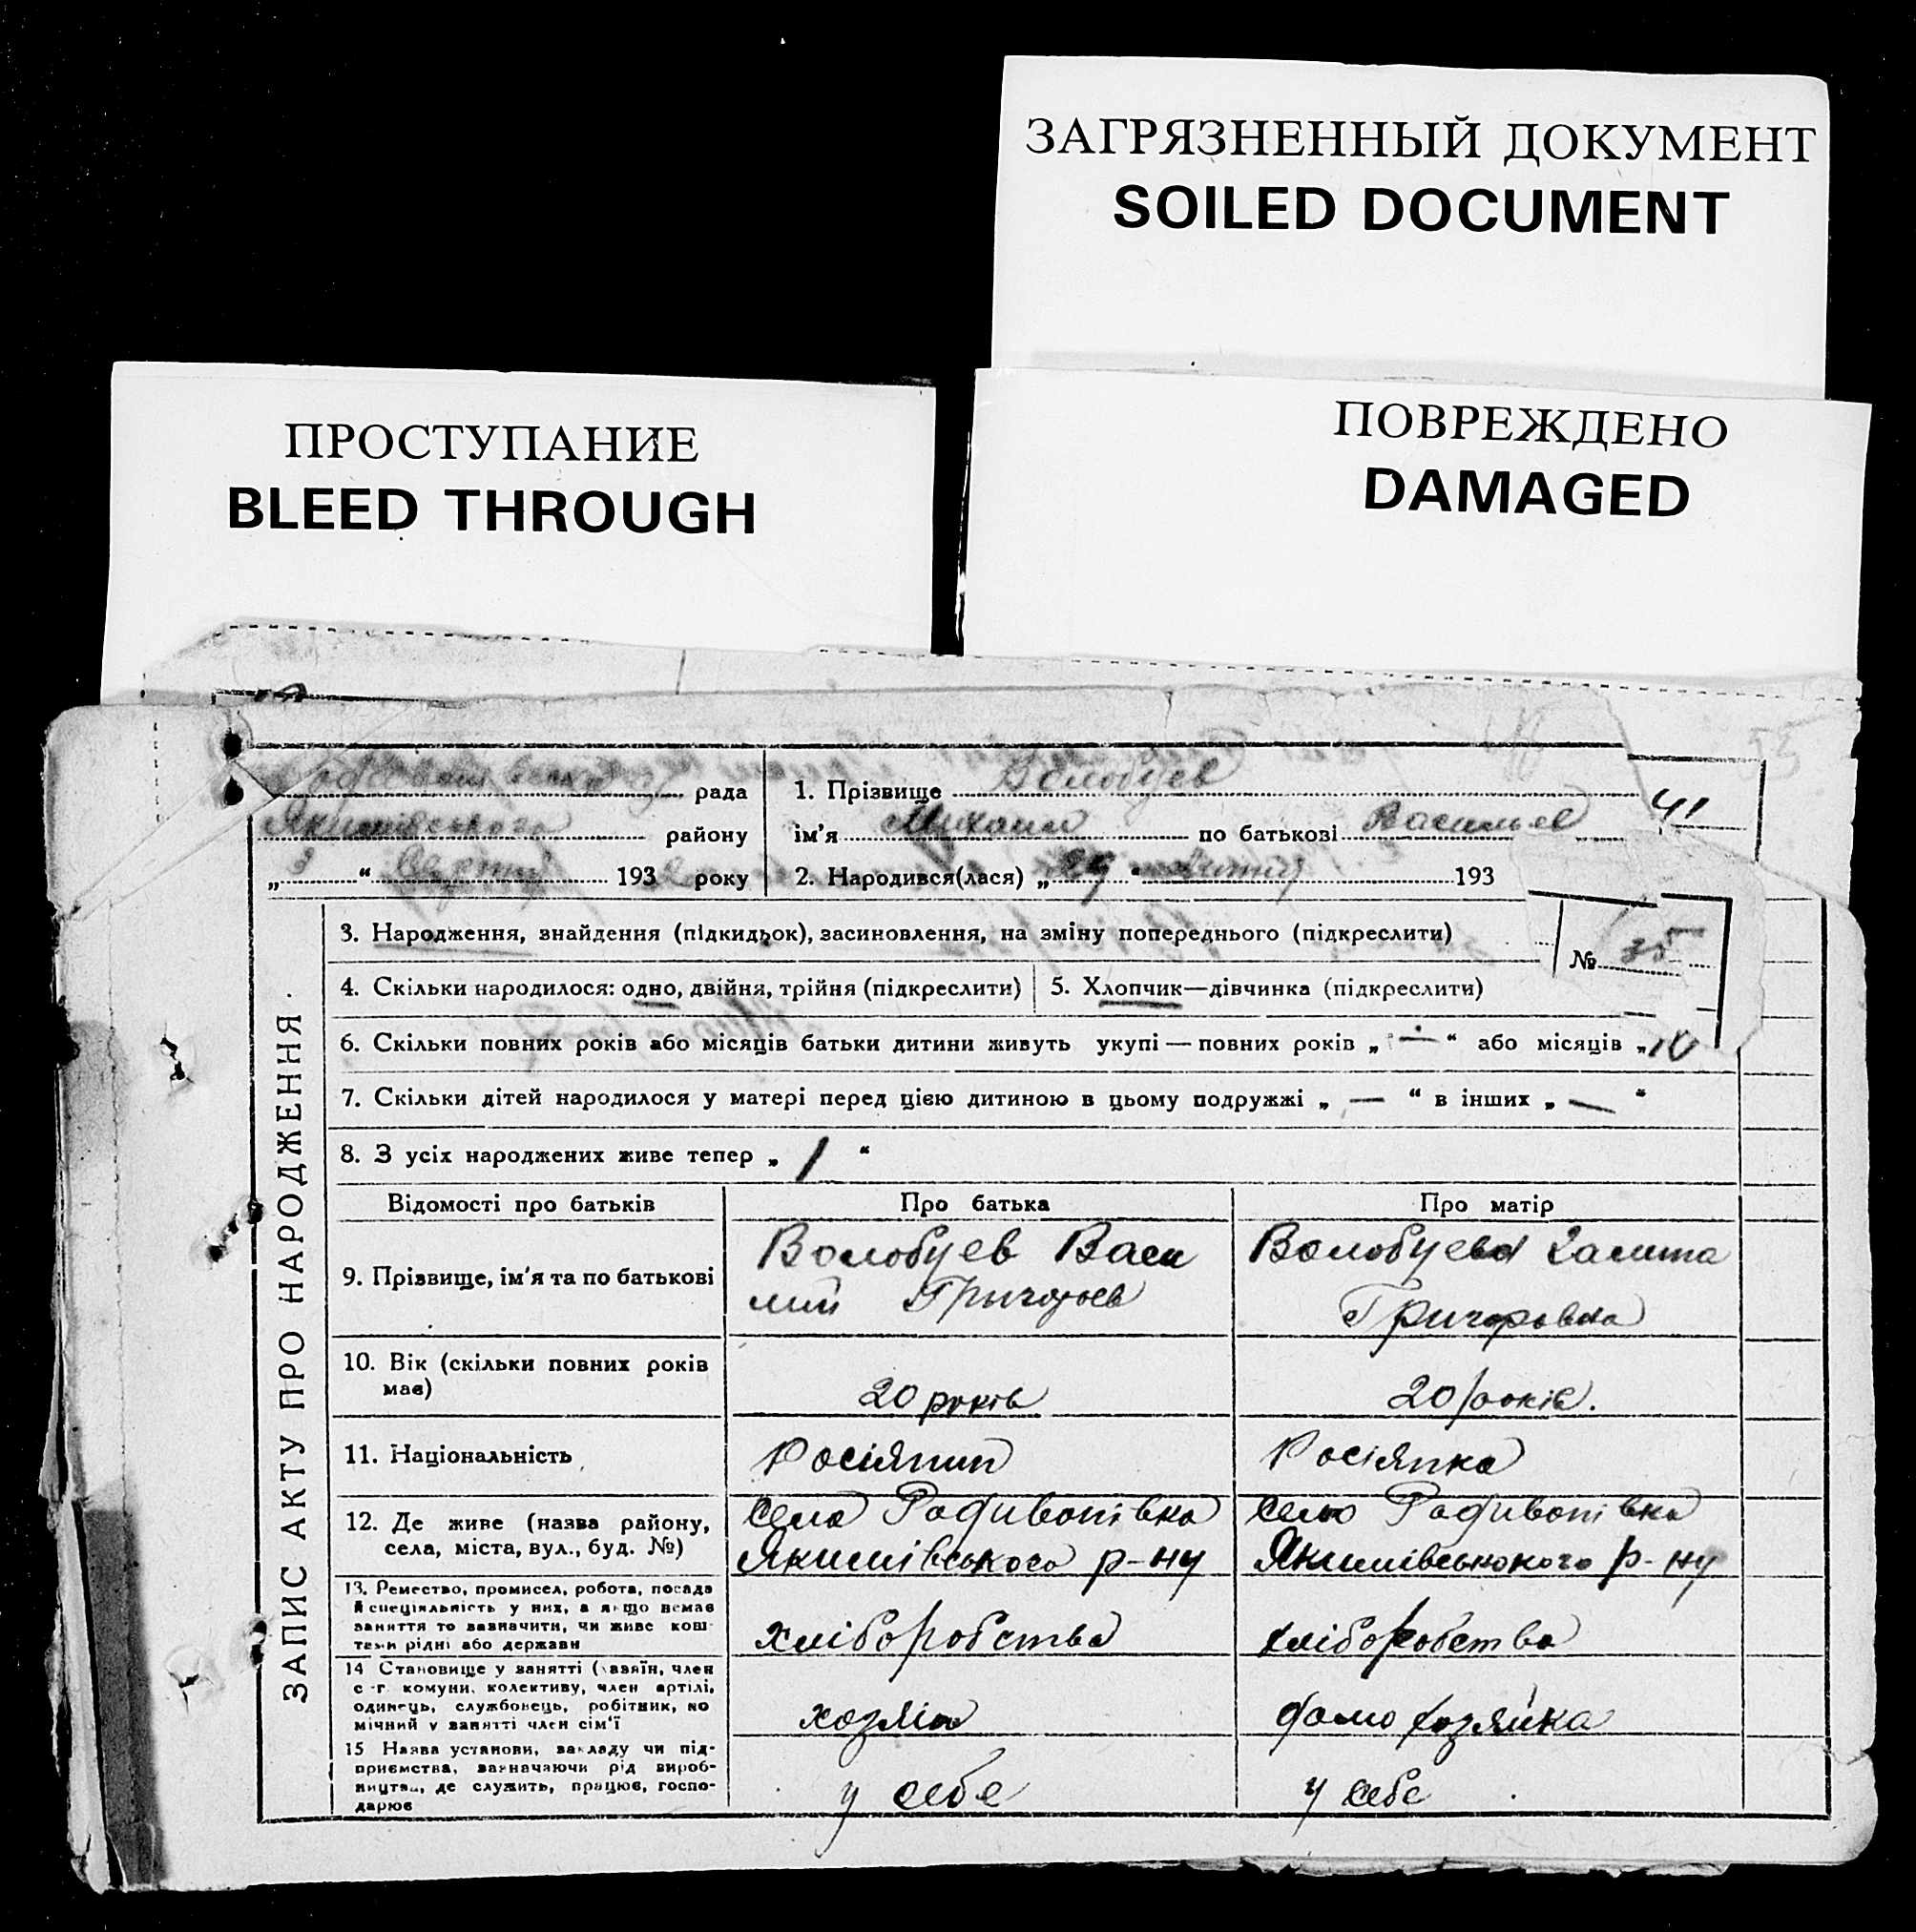 ЗАГРЯЗНЕННЫЙ ДОКУМЕНТ
SOILED DOCUMENT
ПРОСТУПАНИЕ
BLEED THROUGH
ПОВРЕЖДЕНО
DAMAGED
рада
Якимівського району
„ 3 “ 193 року
1. Прізвище Волобуев 41
ім'я Михаил по батькові Васильев
2. Народився(лася) „ 193
3. Народження, знайдення (підкидьок), засиновлення, на зміну попереднього (підкреслити)
№ 35
4. Скільки народилося: одно, двійня, трійня (підкреслити)
5. Хлопчик—дівчинка (підкреслити)
6. Скільки повних років або місяців батьки дитини живуть укупі — повних років „ — “ або місяців „ 10
7. Скільки дітей народилося у матері перед цією дитиною в цьому подружжі „ — “ в інших „ — “
8. З усіх народжених живе тепер „ 1 “
ЗАПИС АКТУ ПРО НАРОДЖЕННЯ.
Відомості про батьків
Про батька
Про матір
9. Прізвище, ім'я та по батькові
Волобуев Васи
лий Григорьев
Волобуева
Григоровна
10. Вік (скільки повних років
має)
20 років
20 років.
11. Національність
Росіянин
Росіянка
12. Де живе (назва району,
села, міста, вул., буд. №)
село Радивонівка
Якимівського р-ну
село Радивонівка
Якимівського р-ну
13. Ремество, промисел, робота, посада
й спеціяльність у них, а якщо немає
заняття то зазначити, чи живе кош
тами рідні або держави
хліборобства
хліборобства
14 Становище у занятті (хазяїн, член
с-г. комуни, колективу, член артілі,
одинець, службовець, робітник, по
мічний у занятті член сім'ї
хозяін
домохозяйка
15 Назва установи, закладу чи під-
приємства, зазначаючи рід вироб-
ництва, де служить, працює, госпо-
дарює
у себе
у себе